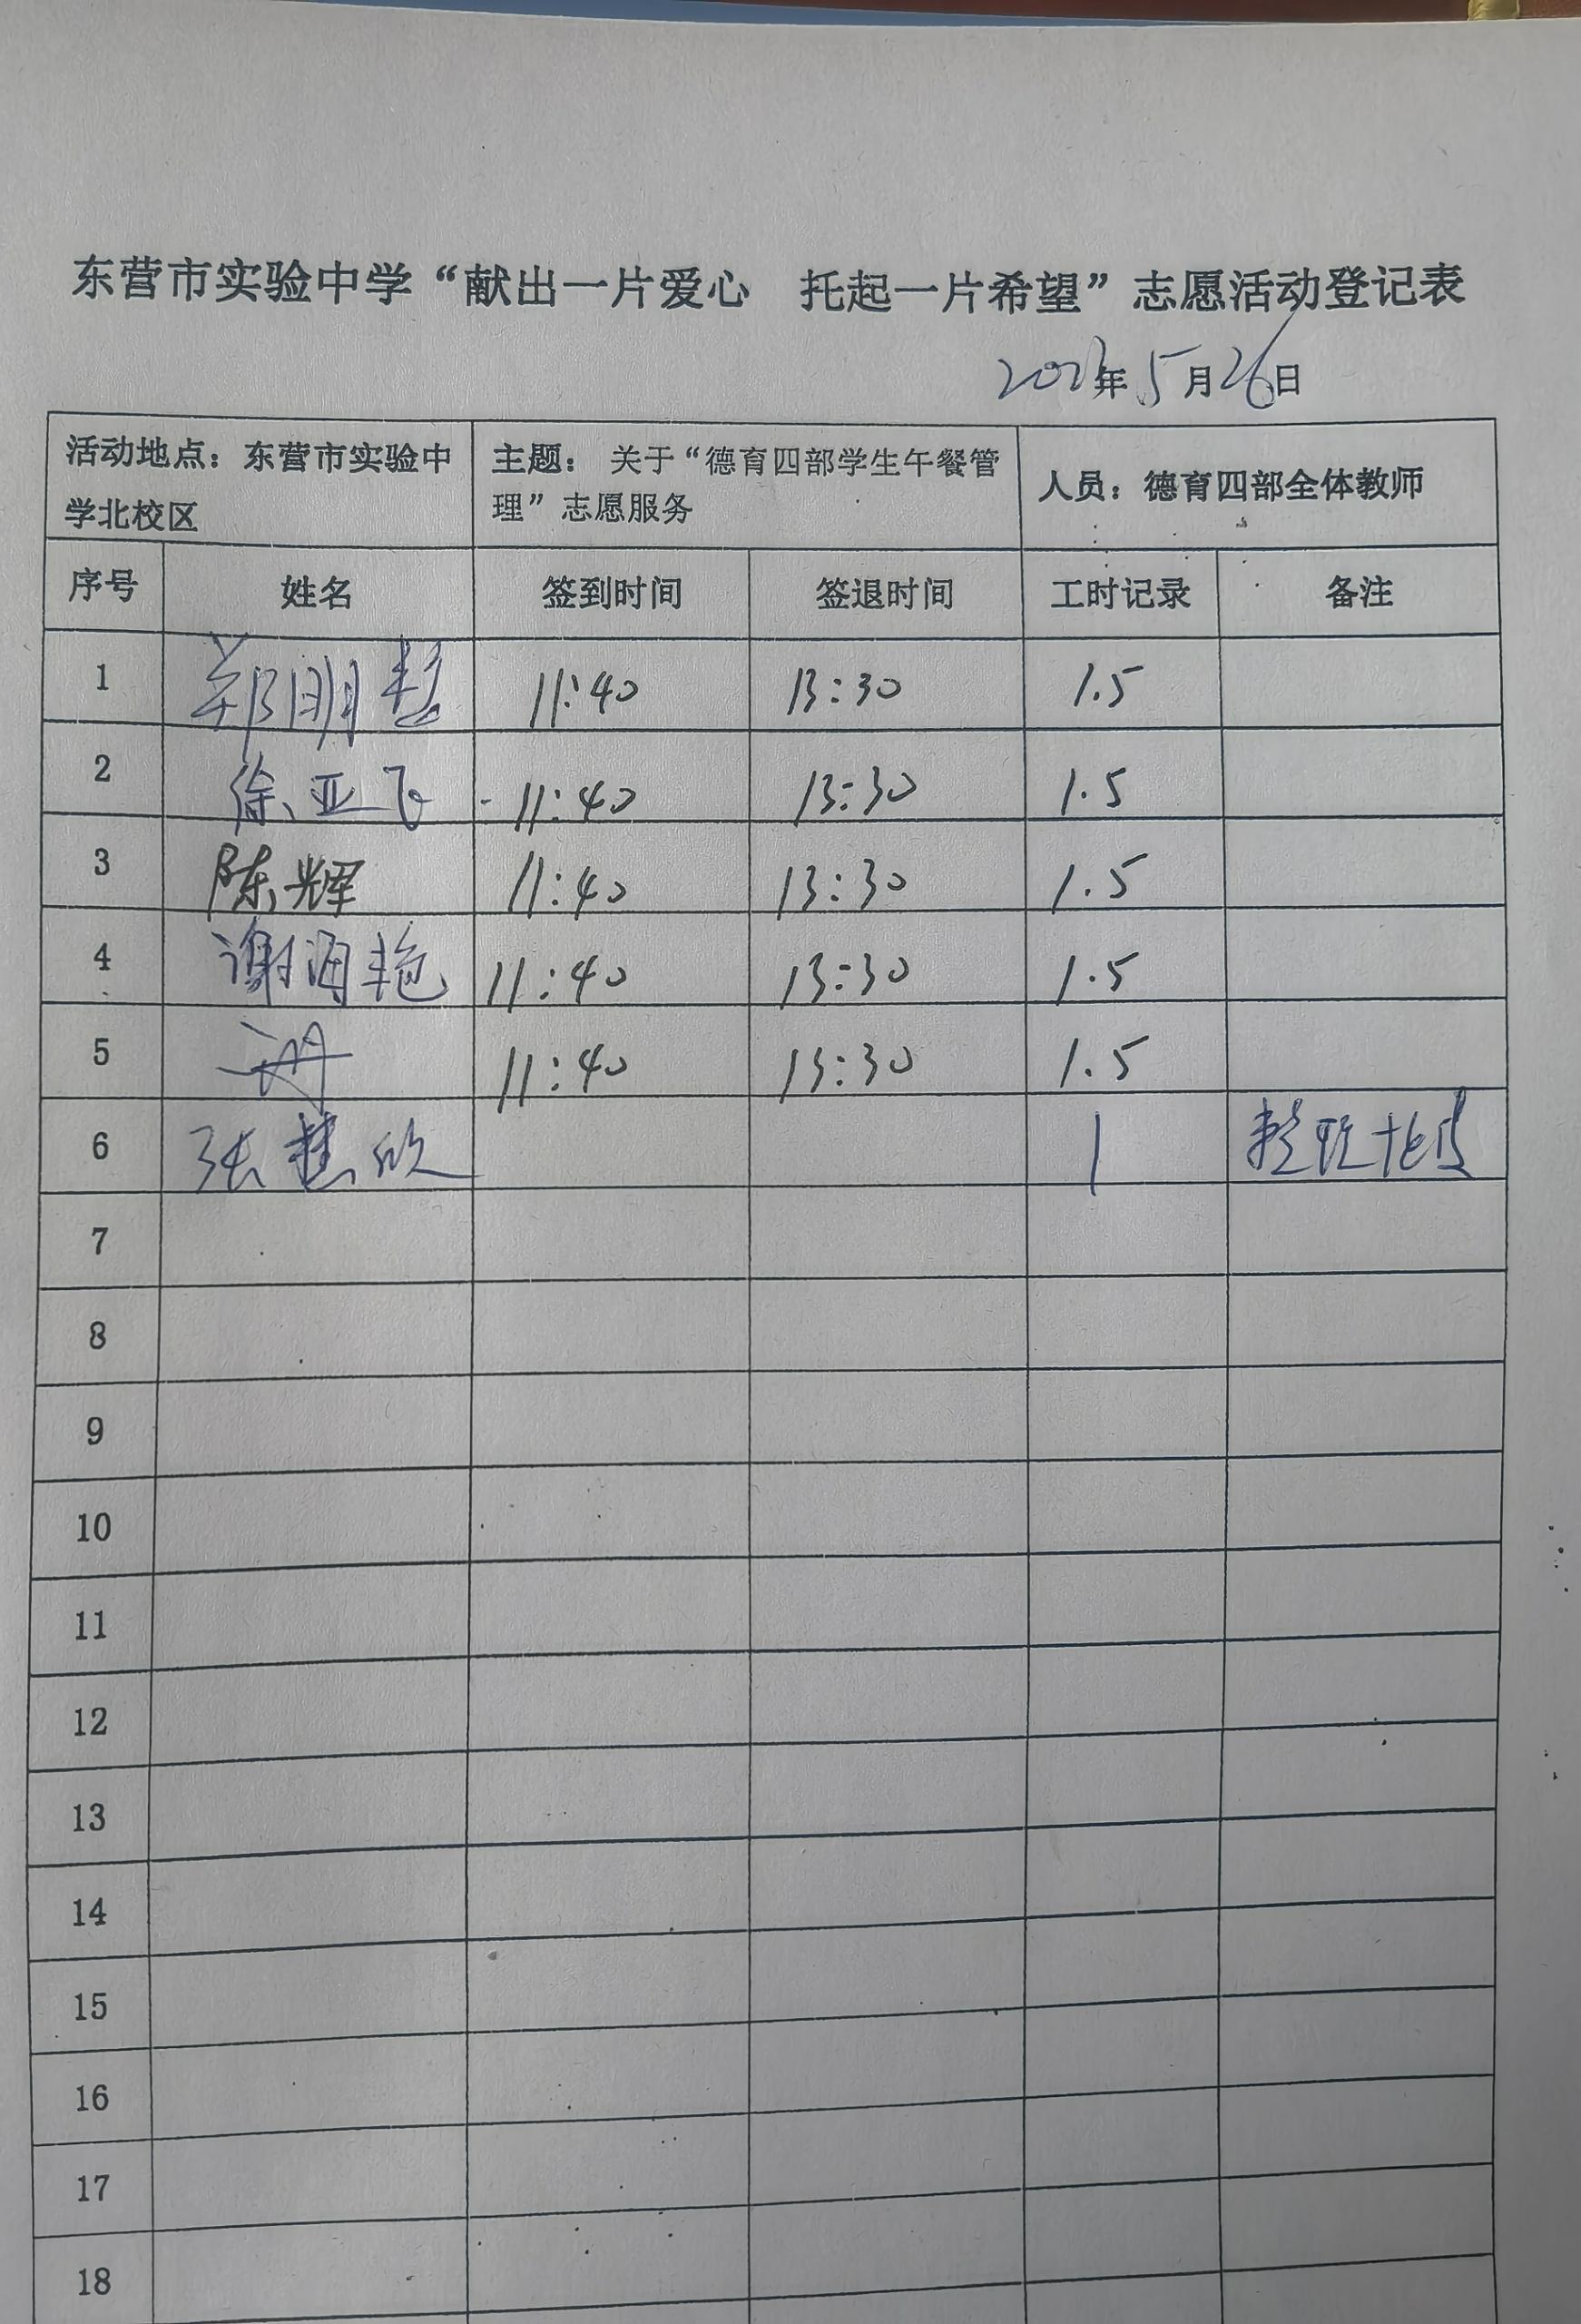 东营市实验中学“献出一片爱心 托起一片希望”志愿活动登记表
2023年5月26日
活动地点：东营市实验中学北校区 主题： 关于“德育四部学生午餐管理”志愿服务 人员：德育四部全体教师
序号 姓名 签到时间 签退时间 工时记录 备注
1 郑明 11:40 13:30 1.5
2 徐亚飞 11:40 13:30 1.5
3 陈辉 11:40 13:30 1.5
4 谢海艳 11:40 13:30 1.5
5 11:40 13:30 1.5
6 张慧欣 1 整理
7
8
9
10
11
12
13
14
15
16
17
18